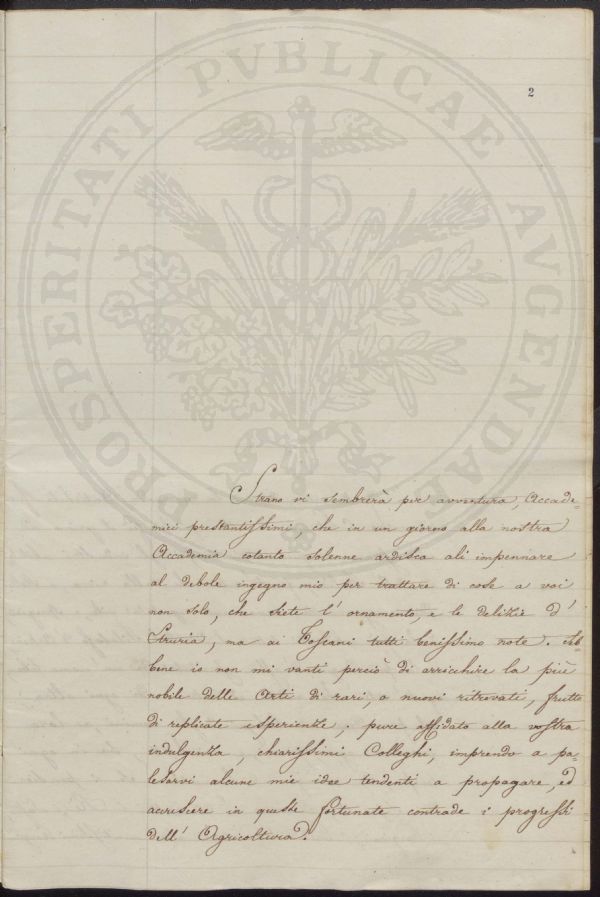 PROSPERITATI PVBLICAE AVGENDAE
2
Strano vi sembrerà per avventura, Accade=
mici prestantissimi, che in un giorno alla nostra
Accademia cotanto solenne ardisca ali impennare
al debole ingegno mio per trattare di cose a voi
non solo, che siete l' ornamento, e le delizie d'
Etruria, ma ai Toscani tutti benissimo note. Seb=
bene io non mi vanti perciò di arricchire la più
nobile delle Arti di rari, o nuovi ritrovati, frutto
di replicate esperienze; pure affidato alla vostra
indulgenza, chiarissimi Colleghi, imprendo a pa=
lesarvi alcune mie idee tendenti a propagare, ed
accrescere in queste fortunate contrade i progressi
dell' Agricoltura.